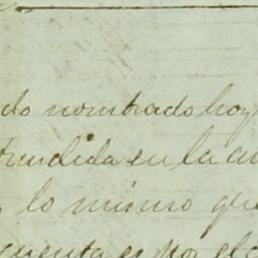 do nombrado hoy
tendida en la a
lo mismo que
cuenta es por el